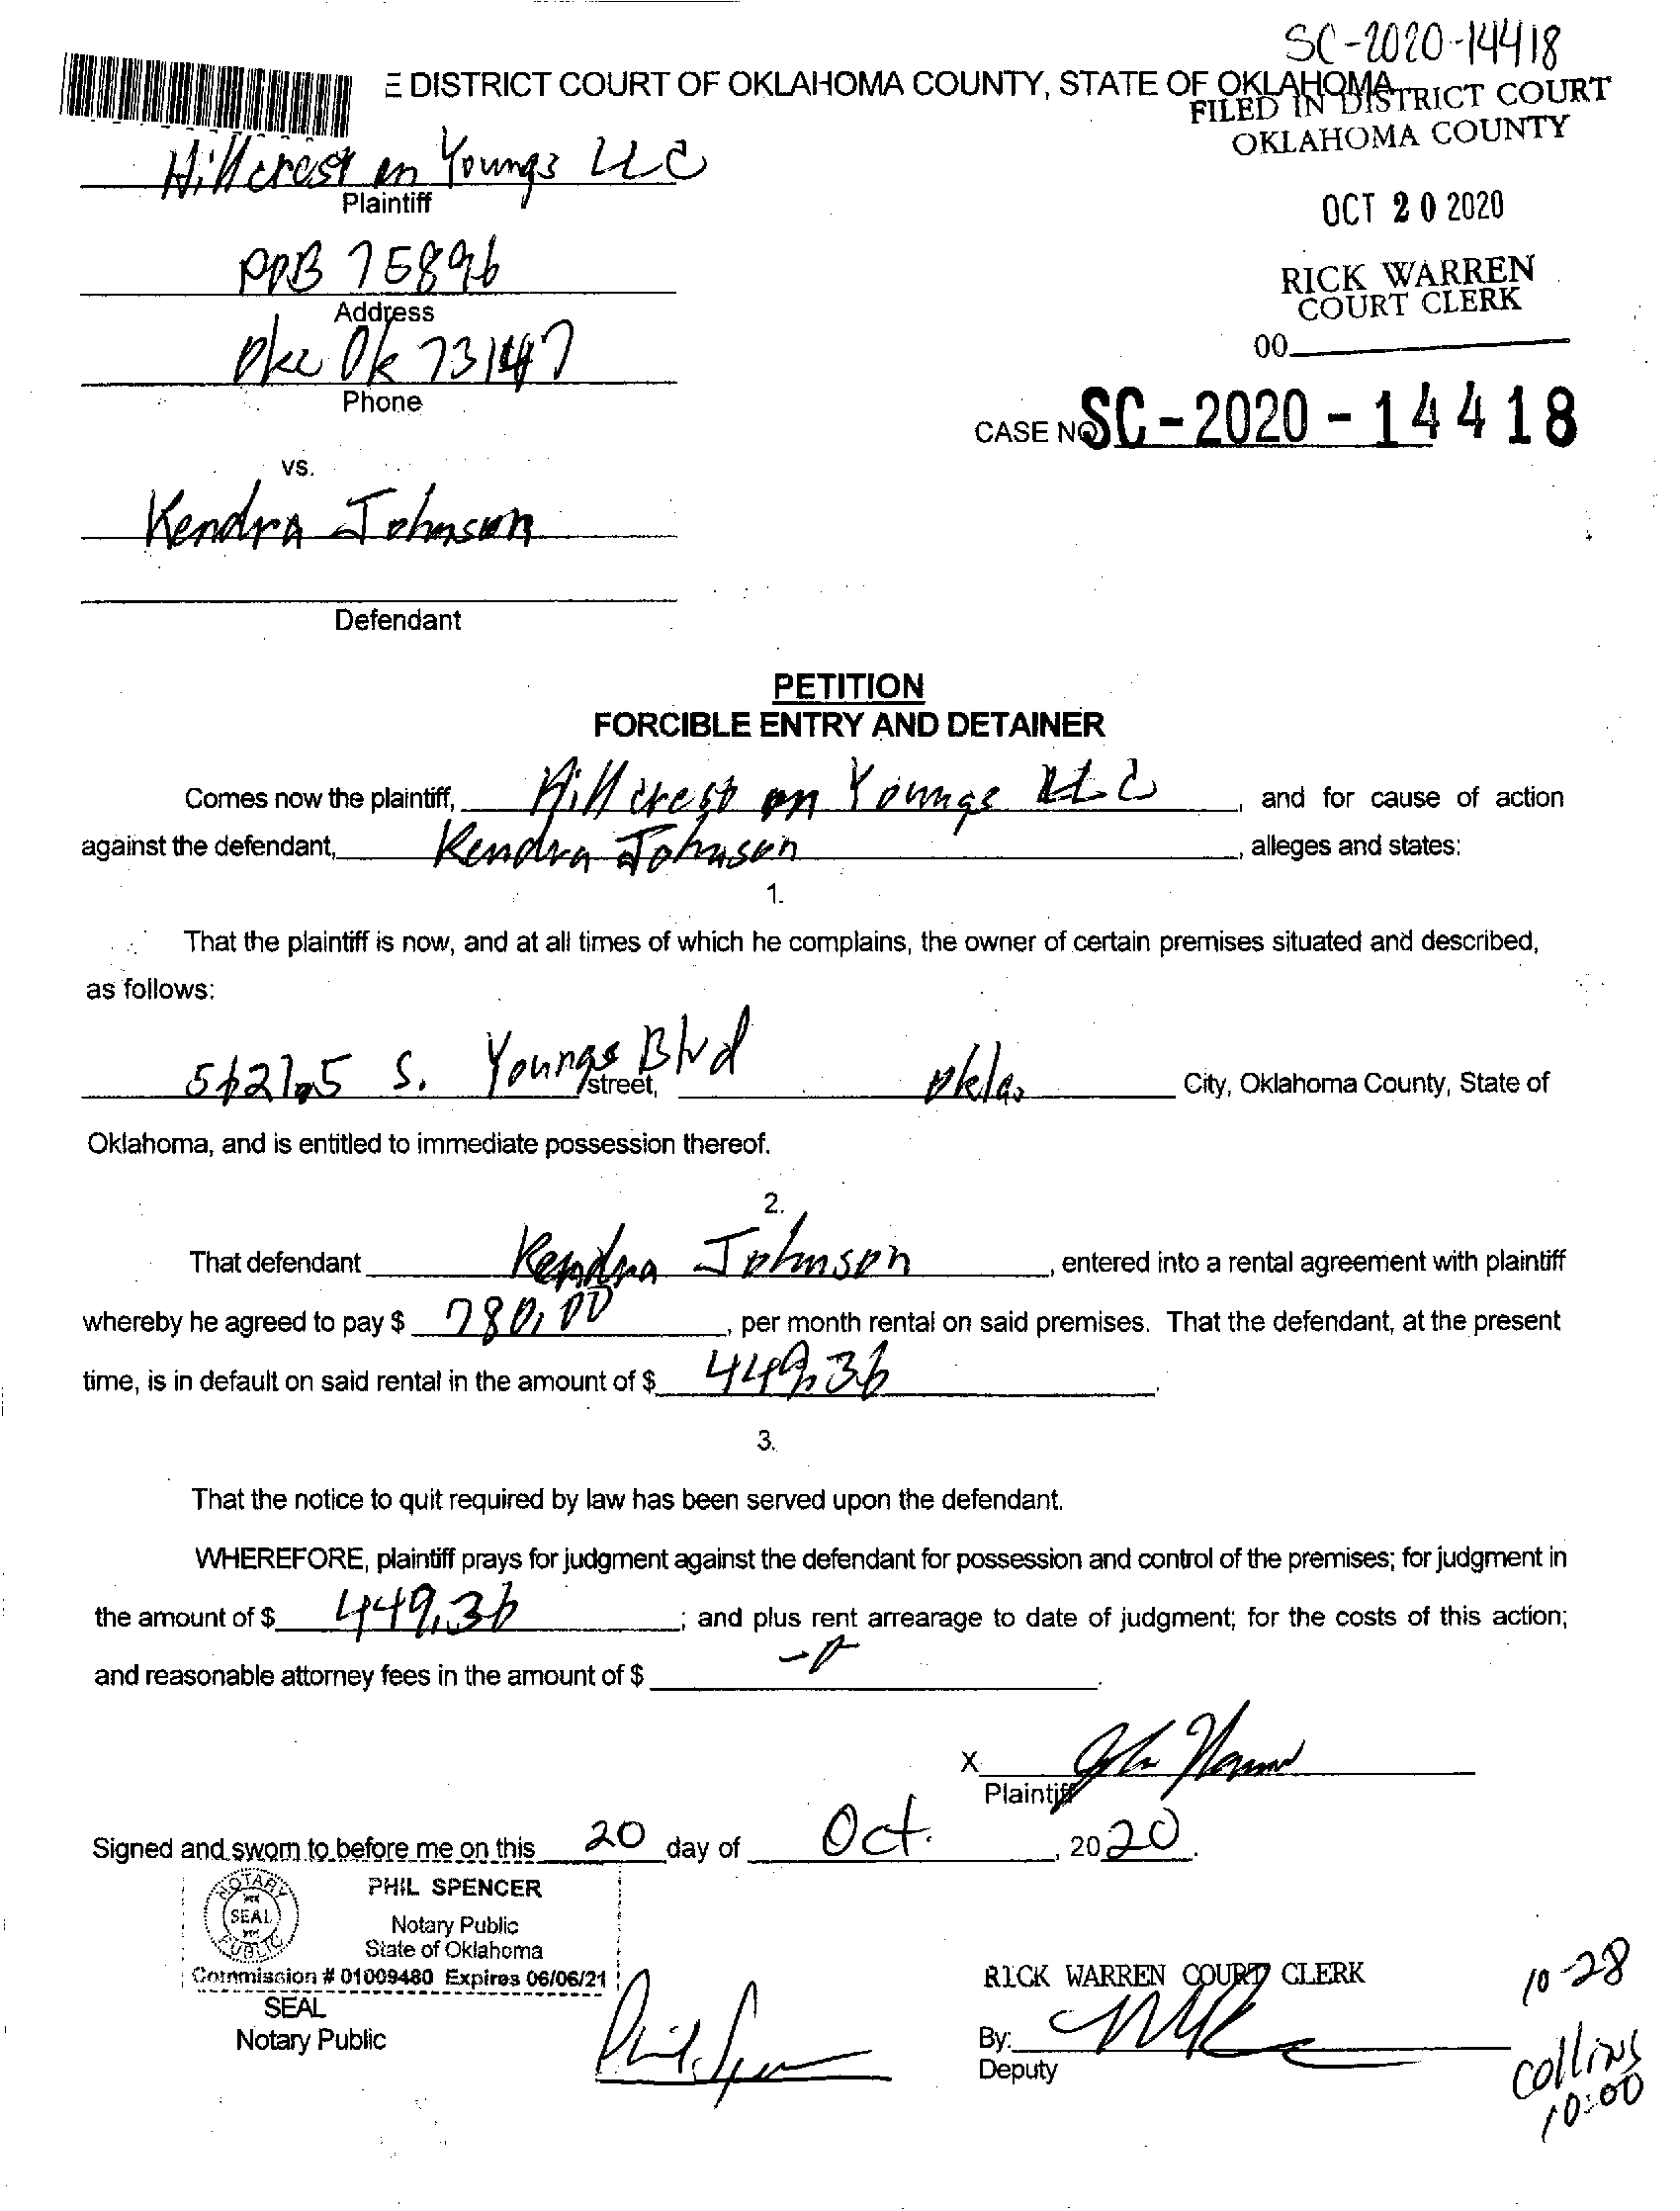 SC-2020-14418
E DISTRICT COURT OF OKLAHOMA COUNTY, STATE OF OKLAHOMA
FILED IN DISTRICT COURT
OKLAHOMA COUNTY
Hillcrest on Youngs LLC
Plaintiff
OCT 20 2020
POB 75896
Address
RICK WARREN
COURT CLERK
Okc Ok 73147
00
Phone
CASE NO SC-2020-14418
vs.
Kendra Johnson
Defendant
PETITION
FORCIBLE ENTRY AND DETAINER
Comes now the plaintiff, Hillcrest on Youngs LLC, and for cause of action
against the defendant, Kendra Johnson, alleges and states:
1.
That the plaintiff is now, and at all times of which he complains, the owner of certain premises situated and described,
as follows:
S. Youngs Blvd street, Okla. City, Oklahoma County, State of
Oklahoma, and is entitled to immediate possession thereof.
2.
That defendant Kendra Johnson, entered into a rental agreement with plaintiff
whereby he agreed to pay $ 780.00, per month rental on said premises. That the defendant, at the present
time, is in default on said rental in the amount of $ 449.36.
3.
That the notice to quit required by law has been served upon the defendant.
WHEREFORE, plaintiff prays for judgment against the defendant for possession and control of the premises; for judgment in
the amount of $ 449.36; and plus rent arrearage to date of judgment; for the costs of this action;
and reasonable attorney fees in the amount of $
X
Plaintiff
Signed and sworn to before me on this 20 day of Oct., 2020.
NOTARY PUBLIC SEAL
PHIL SPENCER
Notary Public
State of Oklahoma
Commission # 01009480 Expires 06/06/21
SEAL
Notary Public
Phil Spencer
RICK WARREN COURT CLERK
By:
Deputy
10-28
Collins
10:00